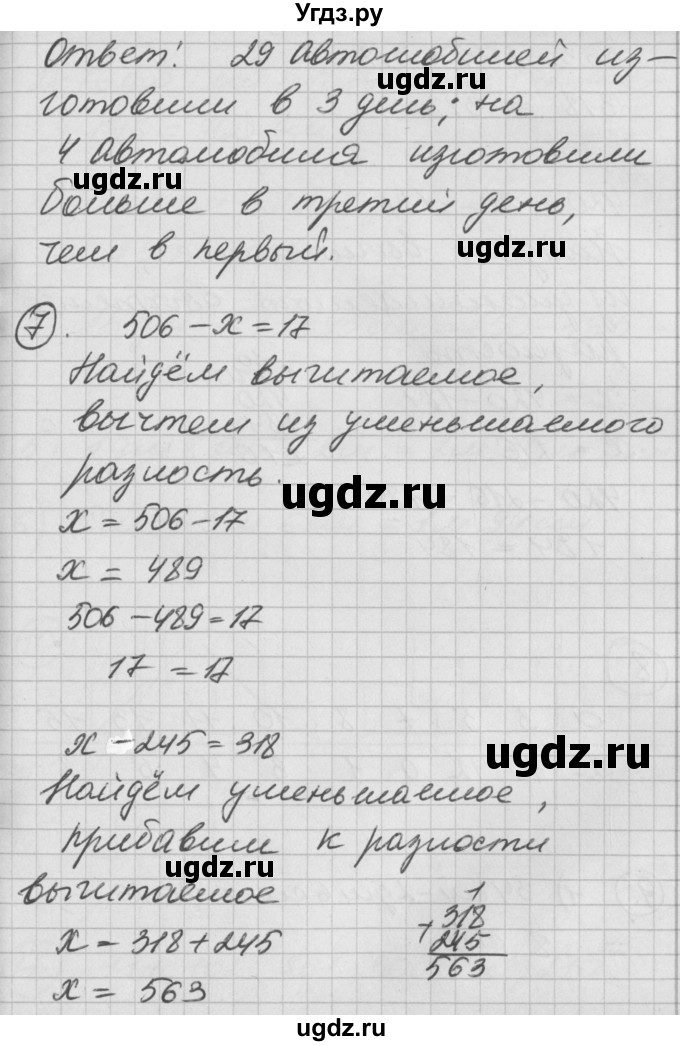 Угдз.ру
Ответ: 29 автомобилей из-
готовили в 3 день; на
4 автомобиля изготовили
больше в третий день,
чем в первый.
7. 506 - x = 17
Найдём вычитаемое,
вычтем из уменьшаемого
разность.
x = 506 - 17
x = 489
506 - 489 = 17
17 = 17
x - 245 = 318
Найдём уменьшаемое,
прибавим к разности
вычитаемое
x = 318 + 245
x = 563
1
+ 318
245
563
ugdz.ru
ugdz.ru
ugdz.ru
ugdz.ru
ugdz.ru
ugdz.ru
ugdz.ru
ugdz.ru